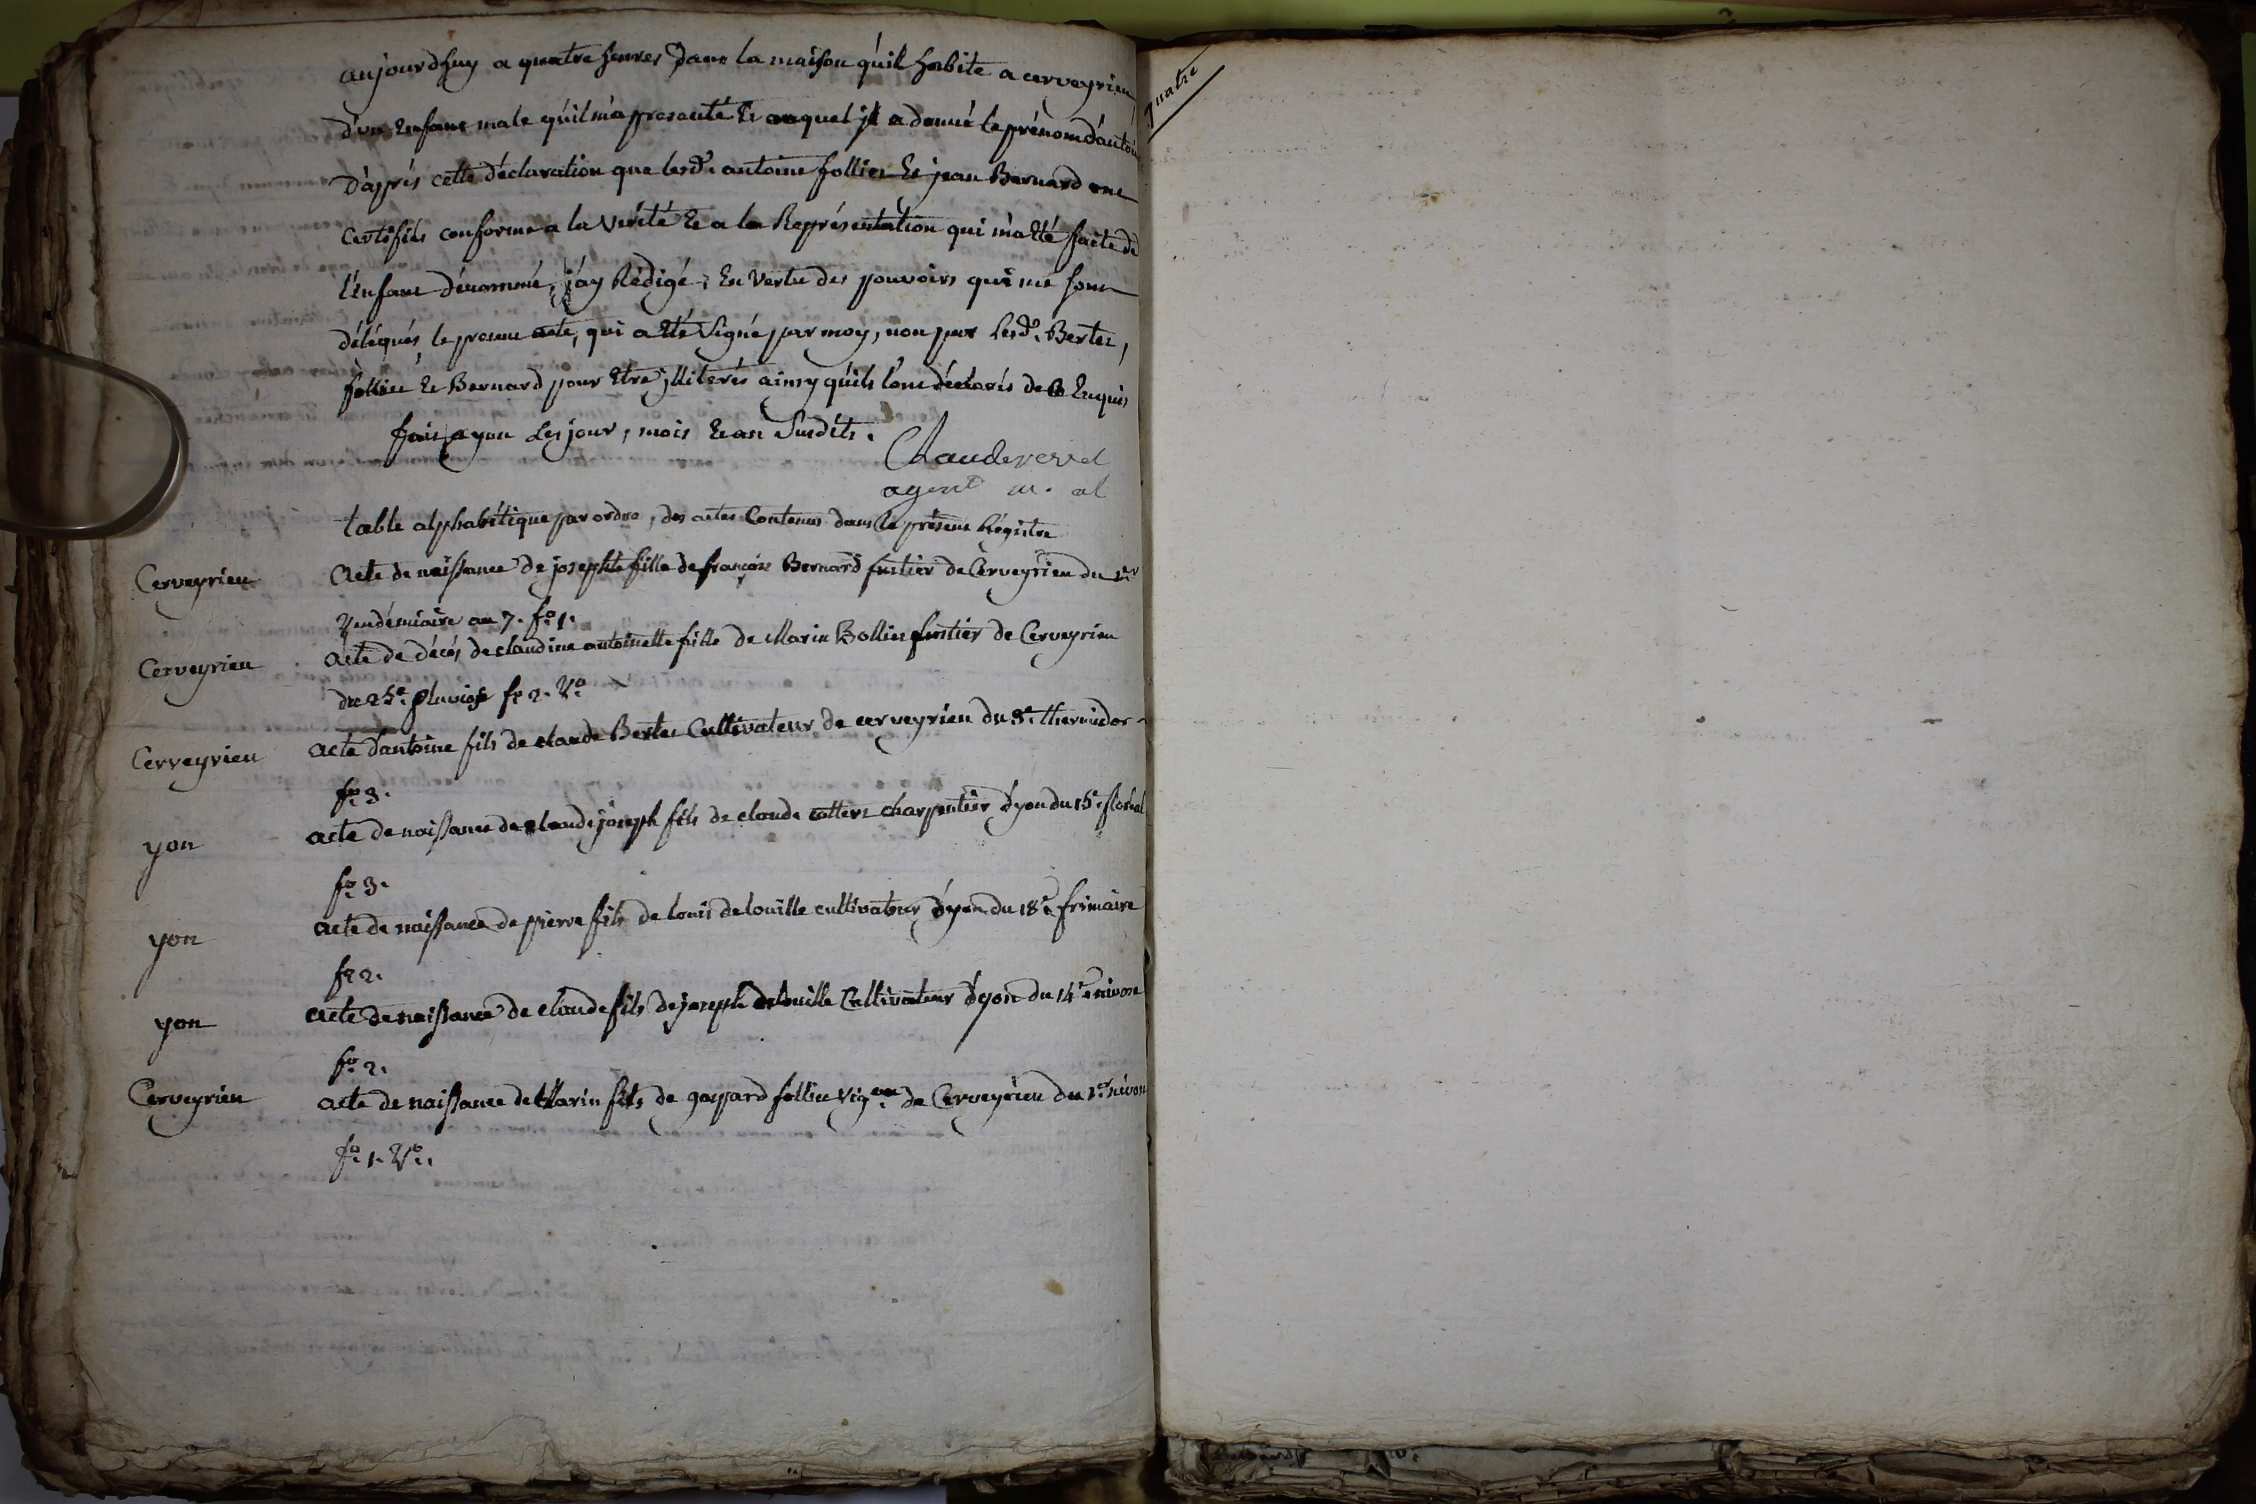 aujourdhuy a quatre heures dans la maison qu'il habite a cerveyrieu
d'un Enfant male qu'il m'a presenté Et auquel jl a donné le prénom d'antoine
D'après cette déclaration que lesd. antoine follier Et jean Bernard ont
certifiés conforme a la vérité Et a la Représentation qui m'a Eté faite de
l'Enfant dénommé, j'ay Rédigé, En vertu des pouvoirs qui me sont
délégués le present acte, qui a Eté signé par moy, non par Lesd. Bertet,
follier Et Bernard pour Etre jlliterés ainsy qu'ils l'ont déclarés de ce Enquis
fait a yon Les jour, mois Et an Susdits.
Claude
agent m. al
table alphabétique par ordre, des actes Contenus dans le présent Régistre
Cerveyrieu Acte de naissance de josephte fille de françois Bernard fustier de Cerveyrieu du 1er
Vendémiaire an 7. fo. 1.
Cerveyrieu Acte de décés de claudine antoinette fille de Marin Bollier fustier de Cerveyrieu
du 25e. pluviose fo 2. Vo.
Cerveyrieu acte d'antoine fils de claude Bertet Cultivateur de cerveyrieu du 3e. thermidor
fo. 3.
yon acte de naissance de claude joseph fils de claude charpentier d'yon du 15e floréal
fo. 3.
yon acte de naissance de pierre fils de louis delouille cultivateur d'yon du 18e. frimaire
fo 2.
yon acte de naissance de claude fils de joseph delouille Cultivateur d'yon du 14e. nivose
fo. 2.
Cerveyrieu acte de naissance de Marin fils de gaspard follier vigon. de Cerveyrieu du 1er nivose
fo. 1. Vo.
quatre